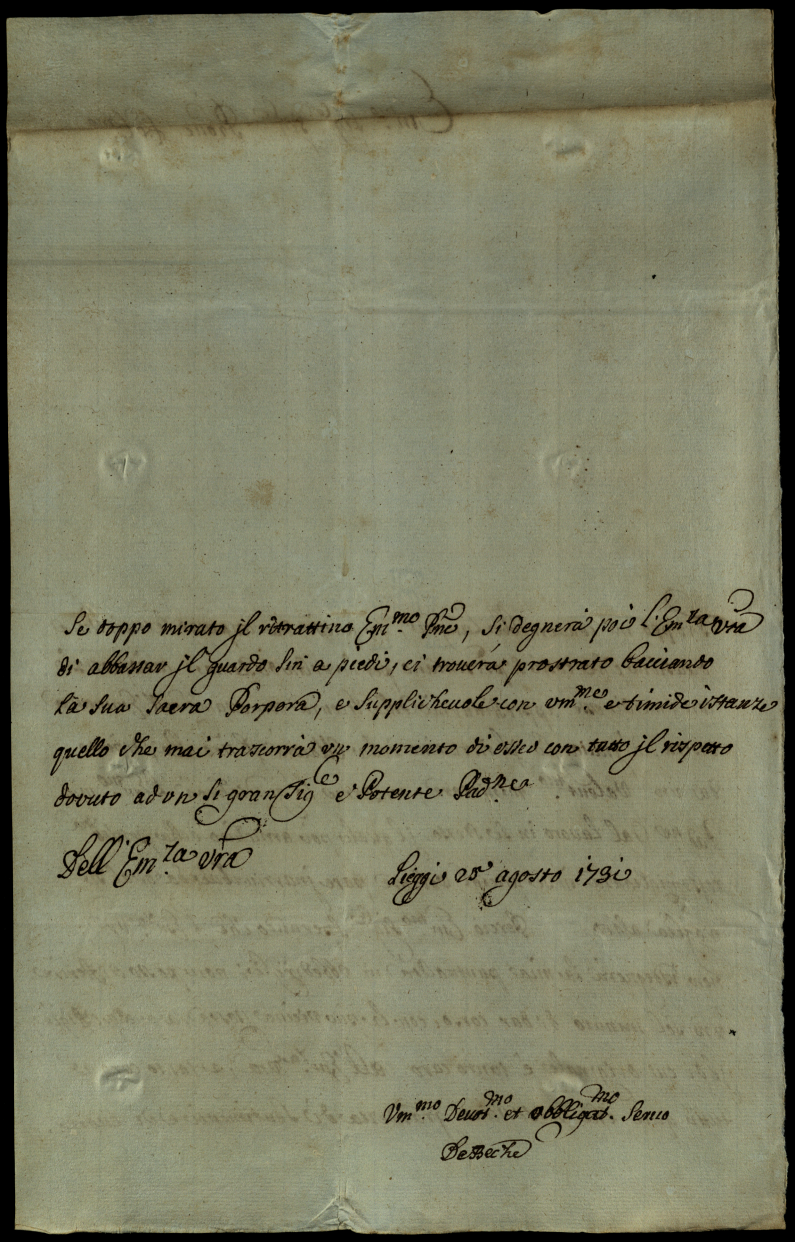 Se doppo mirato jl ritrattino Em.mo Pne, si degnerà poi l'Em.za Vra
di abbassar jl guardo sin a piedi, ci trouerá prostrato bacciando
la sua sacra Porpora, e supplicheuole con vm.me e timide istanze
quello che mai trascorrà vn momento di esser con tutto jl rispetto
dovuto ad vn si gran Sig.e e Potente Pad.ne
Dell' Em.za Vra
Lieggi 25 agosto 1731
Vm.mo Deuot.mo et obbligat.mo Seruo